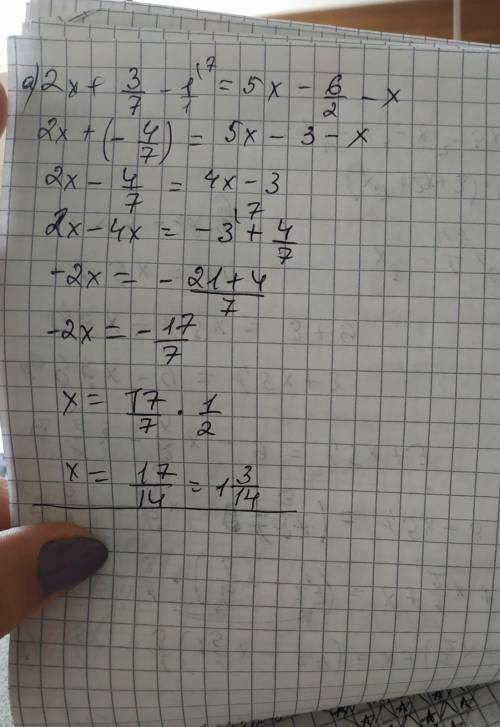 а) 2x + 3/7 - 1/1 (7 = 5x - 6/2 - x
2x + (- 4/7) = 5x - 3 - x
2x - 4/7 = 4x - 3
2x - 4x = -3 (7 + 4/7
-2x = - 21+4/7
-2x = - 17/7
x = 17/7 · 1/2
x = 17/14 = 1 3/14